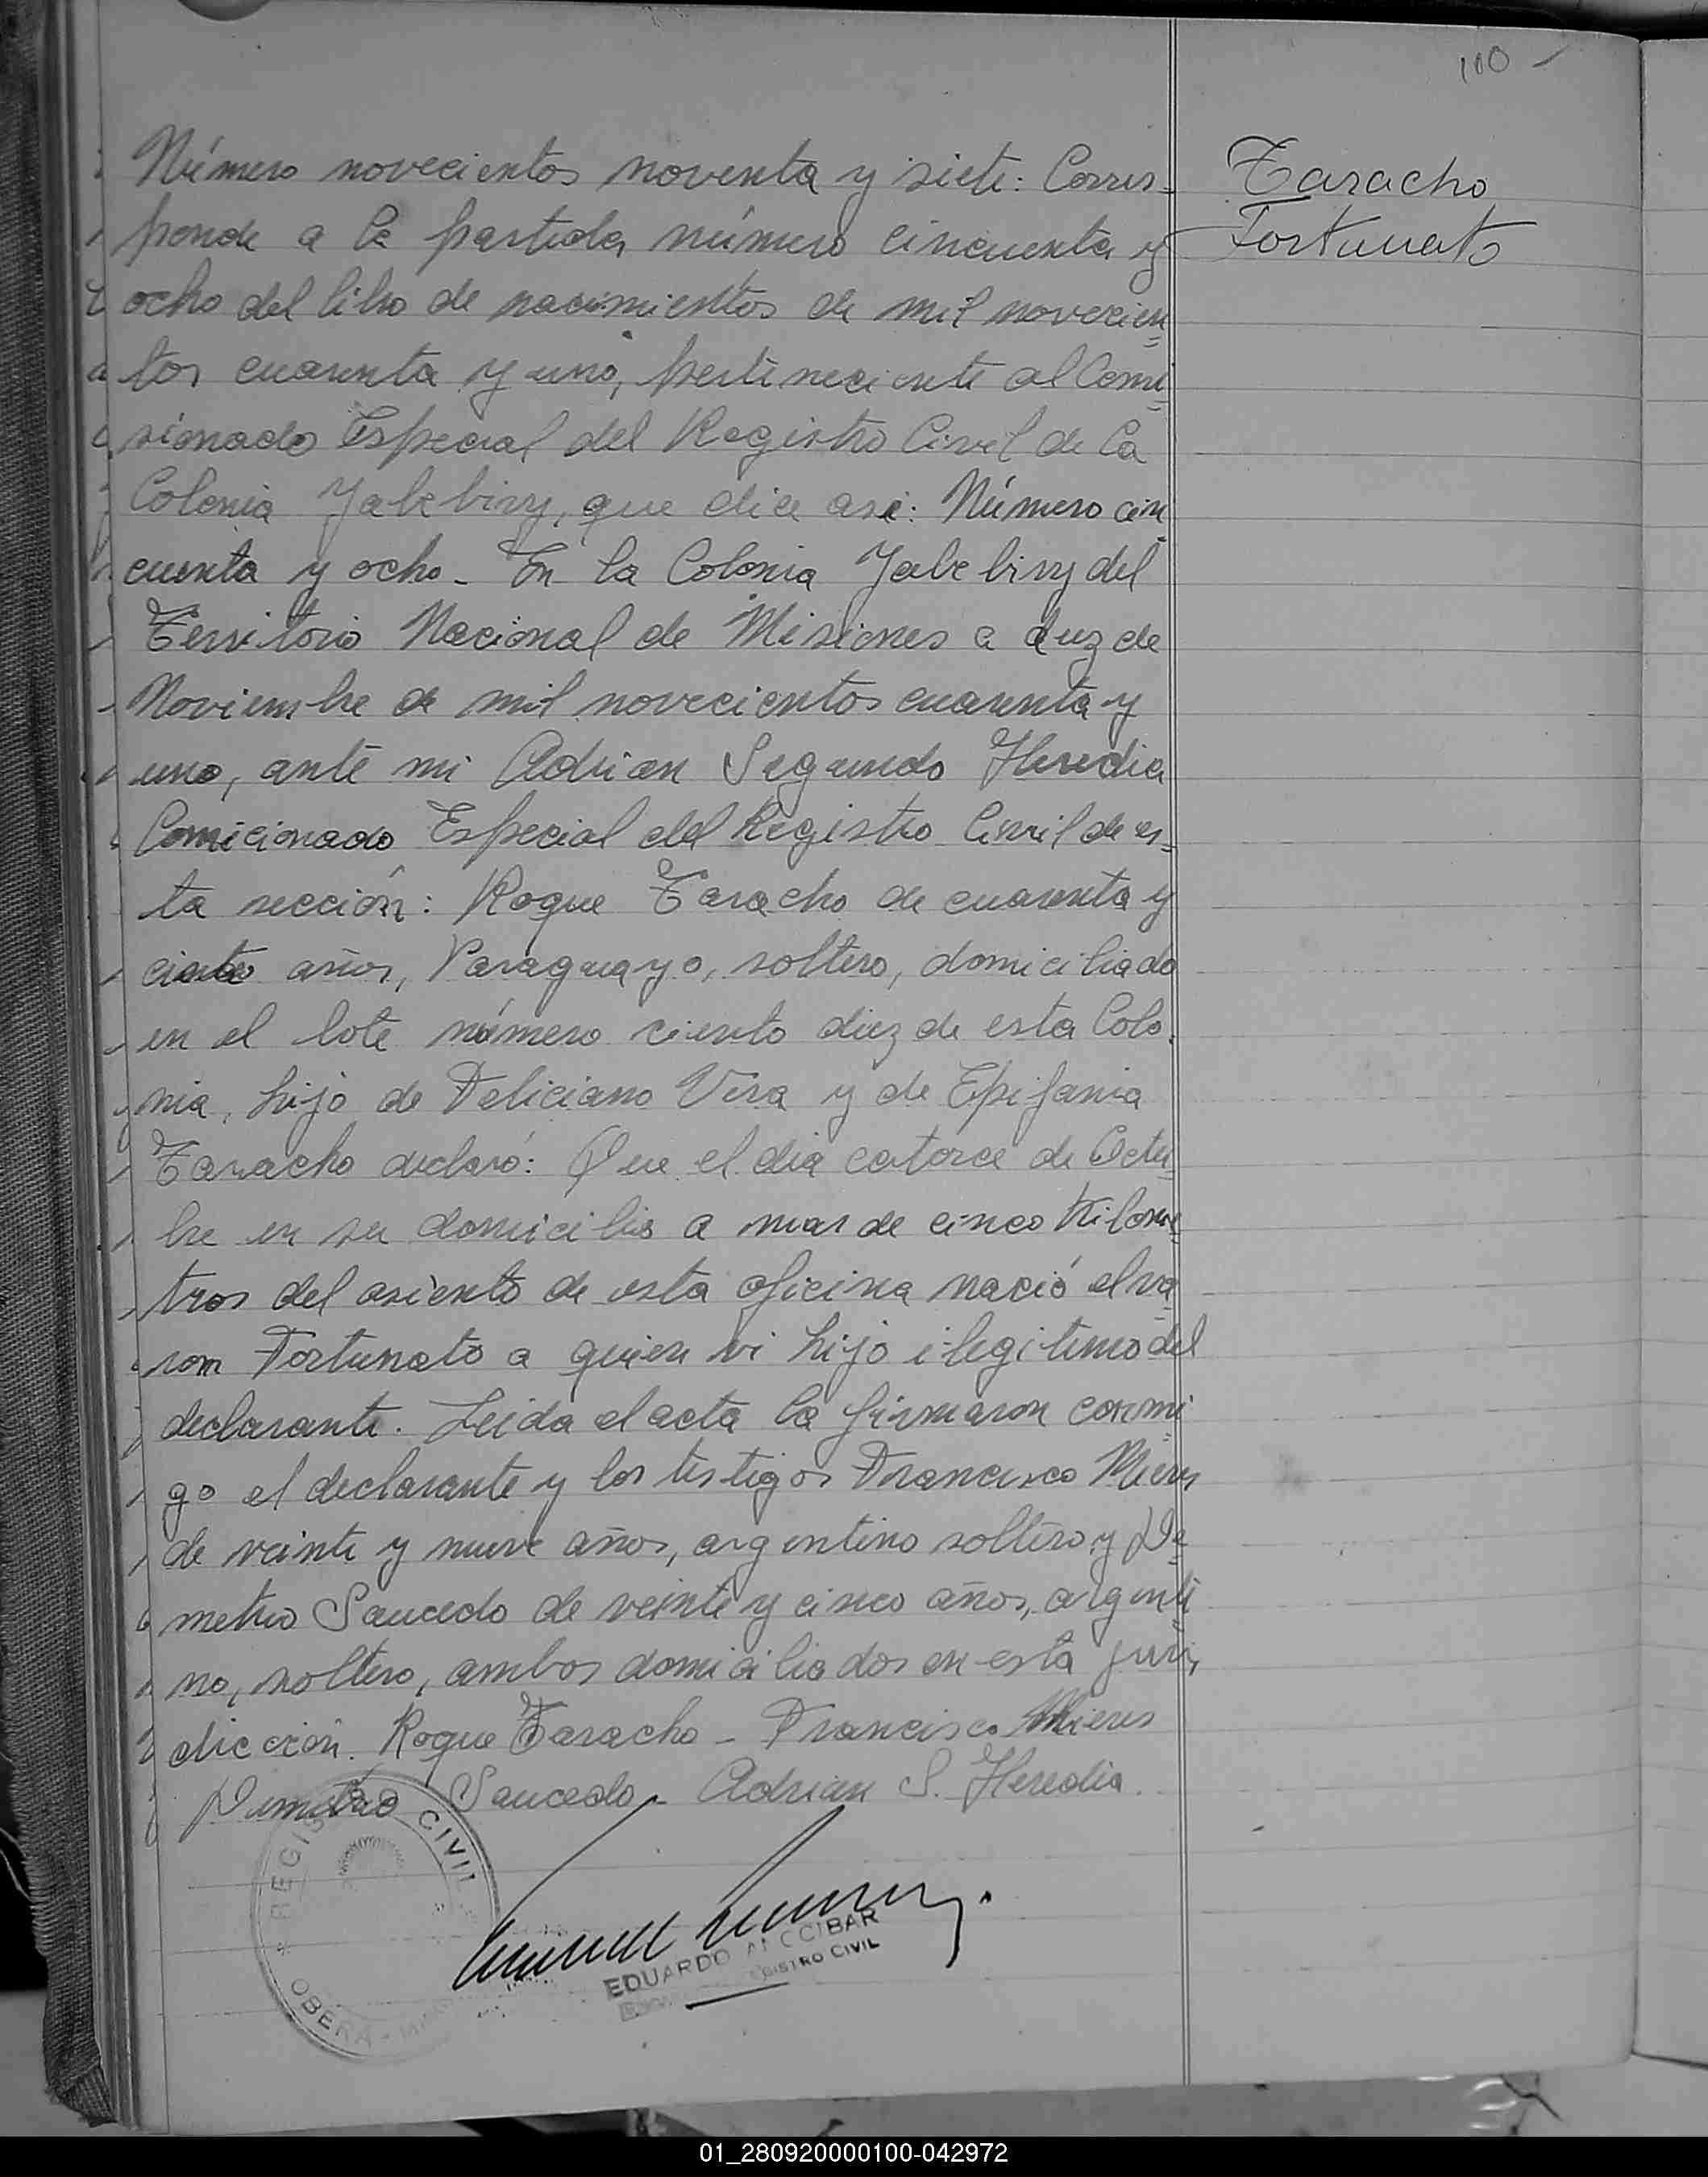 100 -
Taracho
Fortunato
Número novecientos noventa y siete: Corres-
ponde a la partida número cincuenta y
ocho del libro de nacimientos de mil novecien
tos cuarenta y uno, perteneciente al Comi
sionado Especial del Registro Civil de la
Colonia Yabebiry, que dice asi: Número cin
cuenta y ocho - En la Colonia Yabebiry del
Territorio Nacional de Misiones a diez de
Noviembre de mil novecientos cuarenta y
uno, ante mi Adrian Segundo Heredia
Comicionado Especial del Registro Civil de es-
ta sección: Roque Taracho de cuarenta y
años, Paraguayo, soltero, domiciliado
en el lote número ciento diez de esta Colo
nia, hijo de Feliciano Vera y de Epifania
Taracho declaró: Que el dia catorce de Octu
bre en su domicilio a mas de cinco Kilome
tros del asiento de esta oficina nació el va
ron Fortunato a quien vi hijo ilegitimo del
declarante. Leida el acta la firmaron conmi
go el declarante y los testigos Francisco Mieres
de veinte y nueve años, argentino soltero y De
metrio Saucedo de veinte y cinco años, argenti
no, soltero, ambos domiciliados en esta juris
dicción. Roque Taracho - Francisco Mieres
Demetrio Saucedo - Adrian S. Heredia.
REGISTRO CIVIL
OBERA -
EDUARDO
REGISTRO CIVIL
01_280920000100-042972